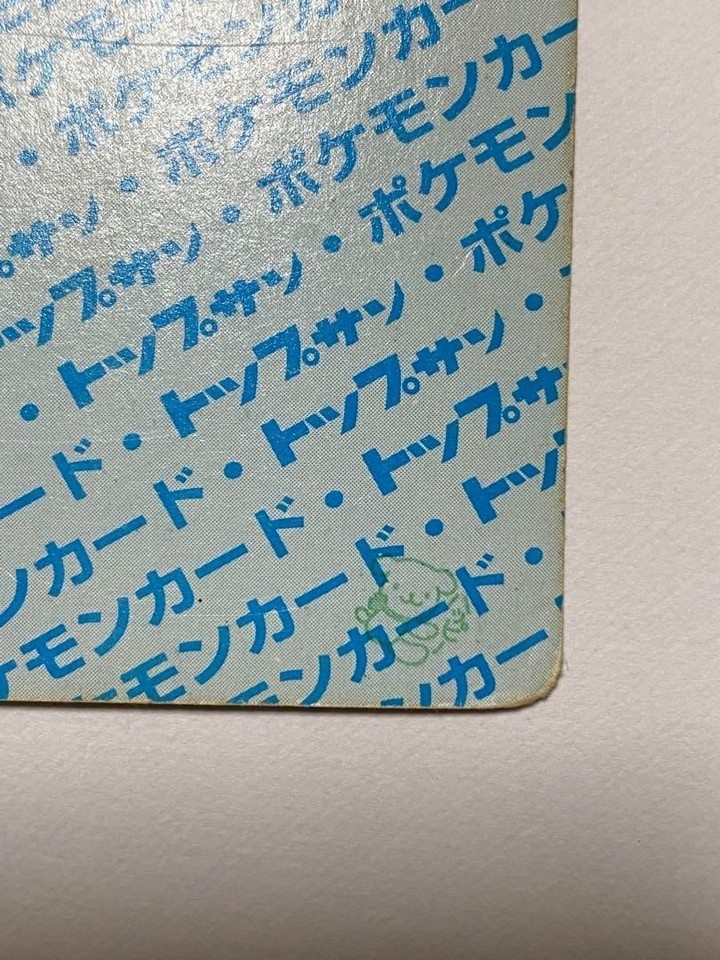 ポケモンカ
ポケモンカー
・ポケモンカー
プサン・ポケモン
ップサン・ポケモンカー
・トップサン・ポケモン
ード・トップサン・ポケ
ンカード・トップサン・
モンカード・トップサン
ケモンカード・トップ
モンカード・
ンカー